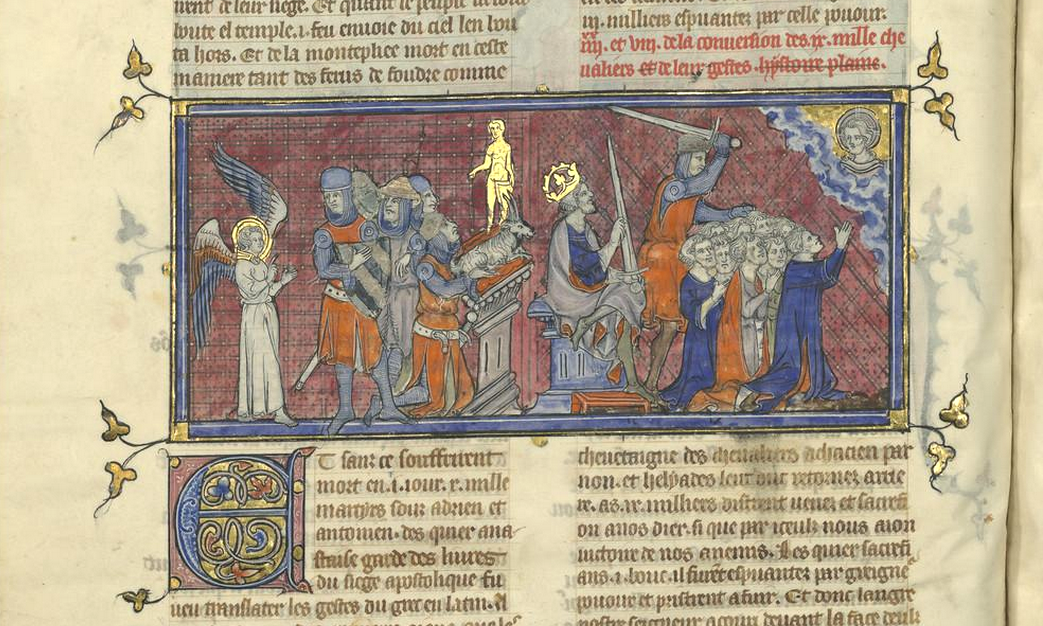 nent de leur siege. Et quant le peuple
toute el temple .i. feu enuoie du ciel len bou
ta hors. Et de la monteplice mort en ceste
maniere tant des ferus de foudre comme
.iij. milliers espuantez par celle
et viij. de la conuersion des .ix. mille che
ualiers et de leur gestes. hystoire plaine.
Et sanz ce souffrirent
mort en .i. iour .x. mille
martyrs souz adrien et
antonien. des quiex ana
stause garde des liures
du siege apostolique fu
ueu translater les gestes du grec en latin.
cheuetaigne des cheualiers dachacien par
non. et helyades leur dut retorner arrie
re. as .ix. milliers distrent uenez et sacrefi
on a nos diex. si que par iceulz nous aion
uictoire de nos anemis. Les quiex sacrefi
ans .i. bouc. il furent espuantez par greigne
pouoir et pristrent a fuir. Et donc langre
nostre seigneur deuant la face